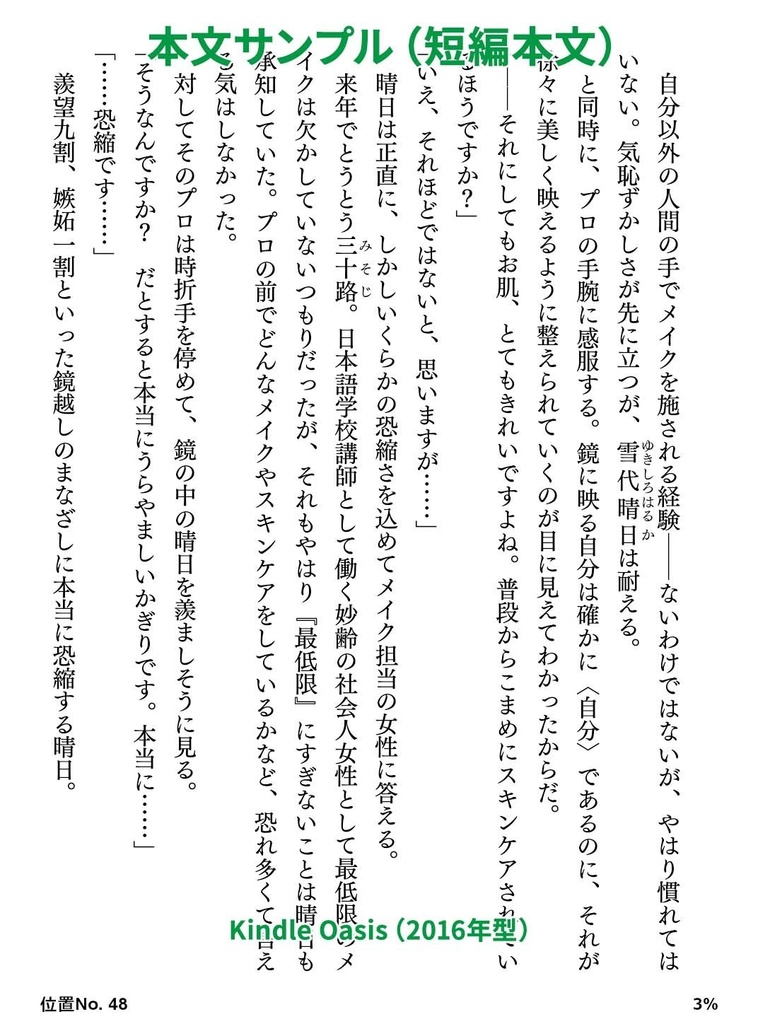 本文サンプル（短編本文）
自分以外の人間の手でメイクを施される経験――ないわけではないが、やはり慣れては
いない。気恥ずかしさが先に立つが、雪代晴日は耐える。
ゆきしろはるか
と同時に、プロの手腕に感服する。鏡に映る自分は確かに〈自分〉であるのに、それが
徐々に美しく映えるように整えられていくのが目に見えてわかったからだ。
――それにしてもお肌、とてもきれいですよね。普段からこまめにスキンケアされてい
るほうですか？」
いえ、それほどではないと、思いますが……」
晴日は正直に、しかしいくらかの恐縮さを込めてメイク担当の女性に答える。
来年でとうとう三十路。日本語学校講師として働く妙齢の社会人女性として最低限のメ
みそじ
イクは欠かしていないつもりだったが、それもやはり『最低限』にすぎないことは晴日も
承知していた。プロの前でどんなメイクやスキンケアをしているかなど、恐れ多くて言え
る気はしなかった。
対してそのプロは時折手を停めて、鏡の中の晴日を羨ましそうに見る。
「そうなんですか？　だとすると本当にうらやましいかぎりです。本当に……」
「……恐縮です……」
羨望九割、嫉妬一割といった鏡越しのまなざしに本当に恐縮する晴日。
Kindle Oasis（2016年型）
位置No. 48
3%